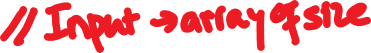 // Input → array of size